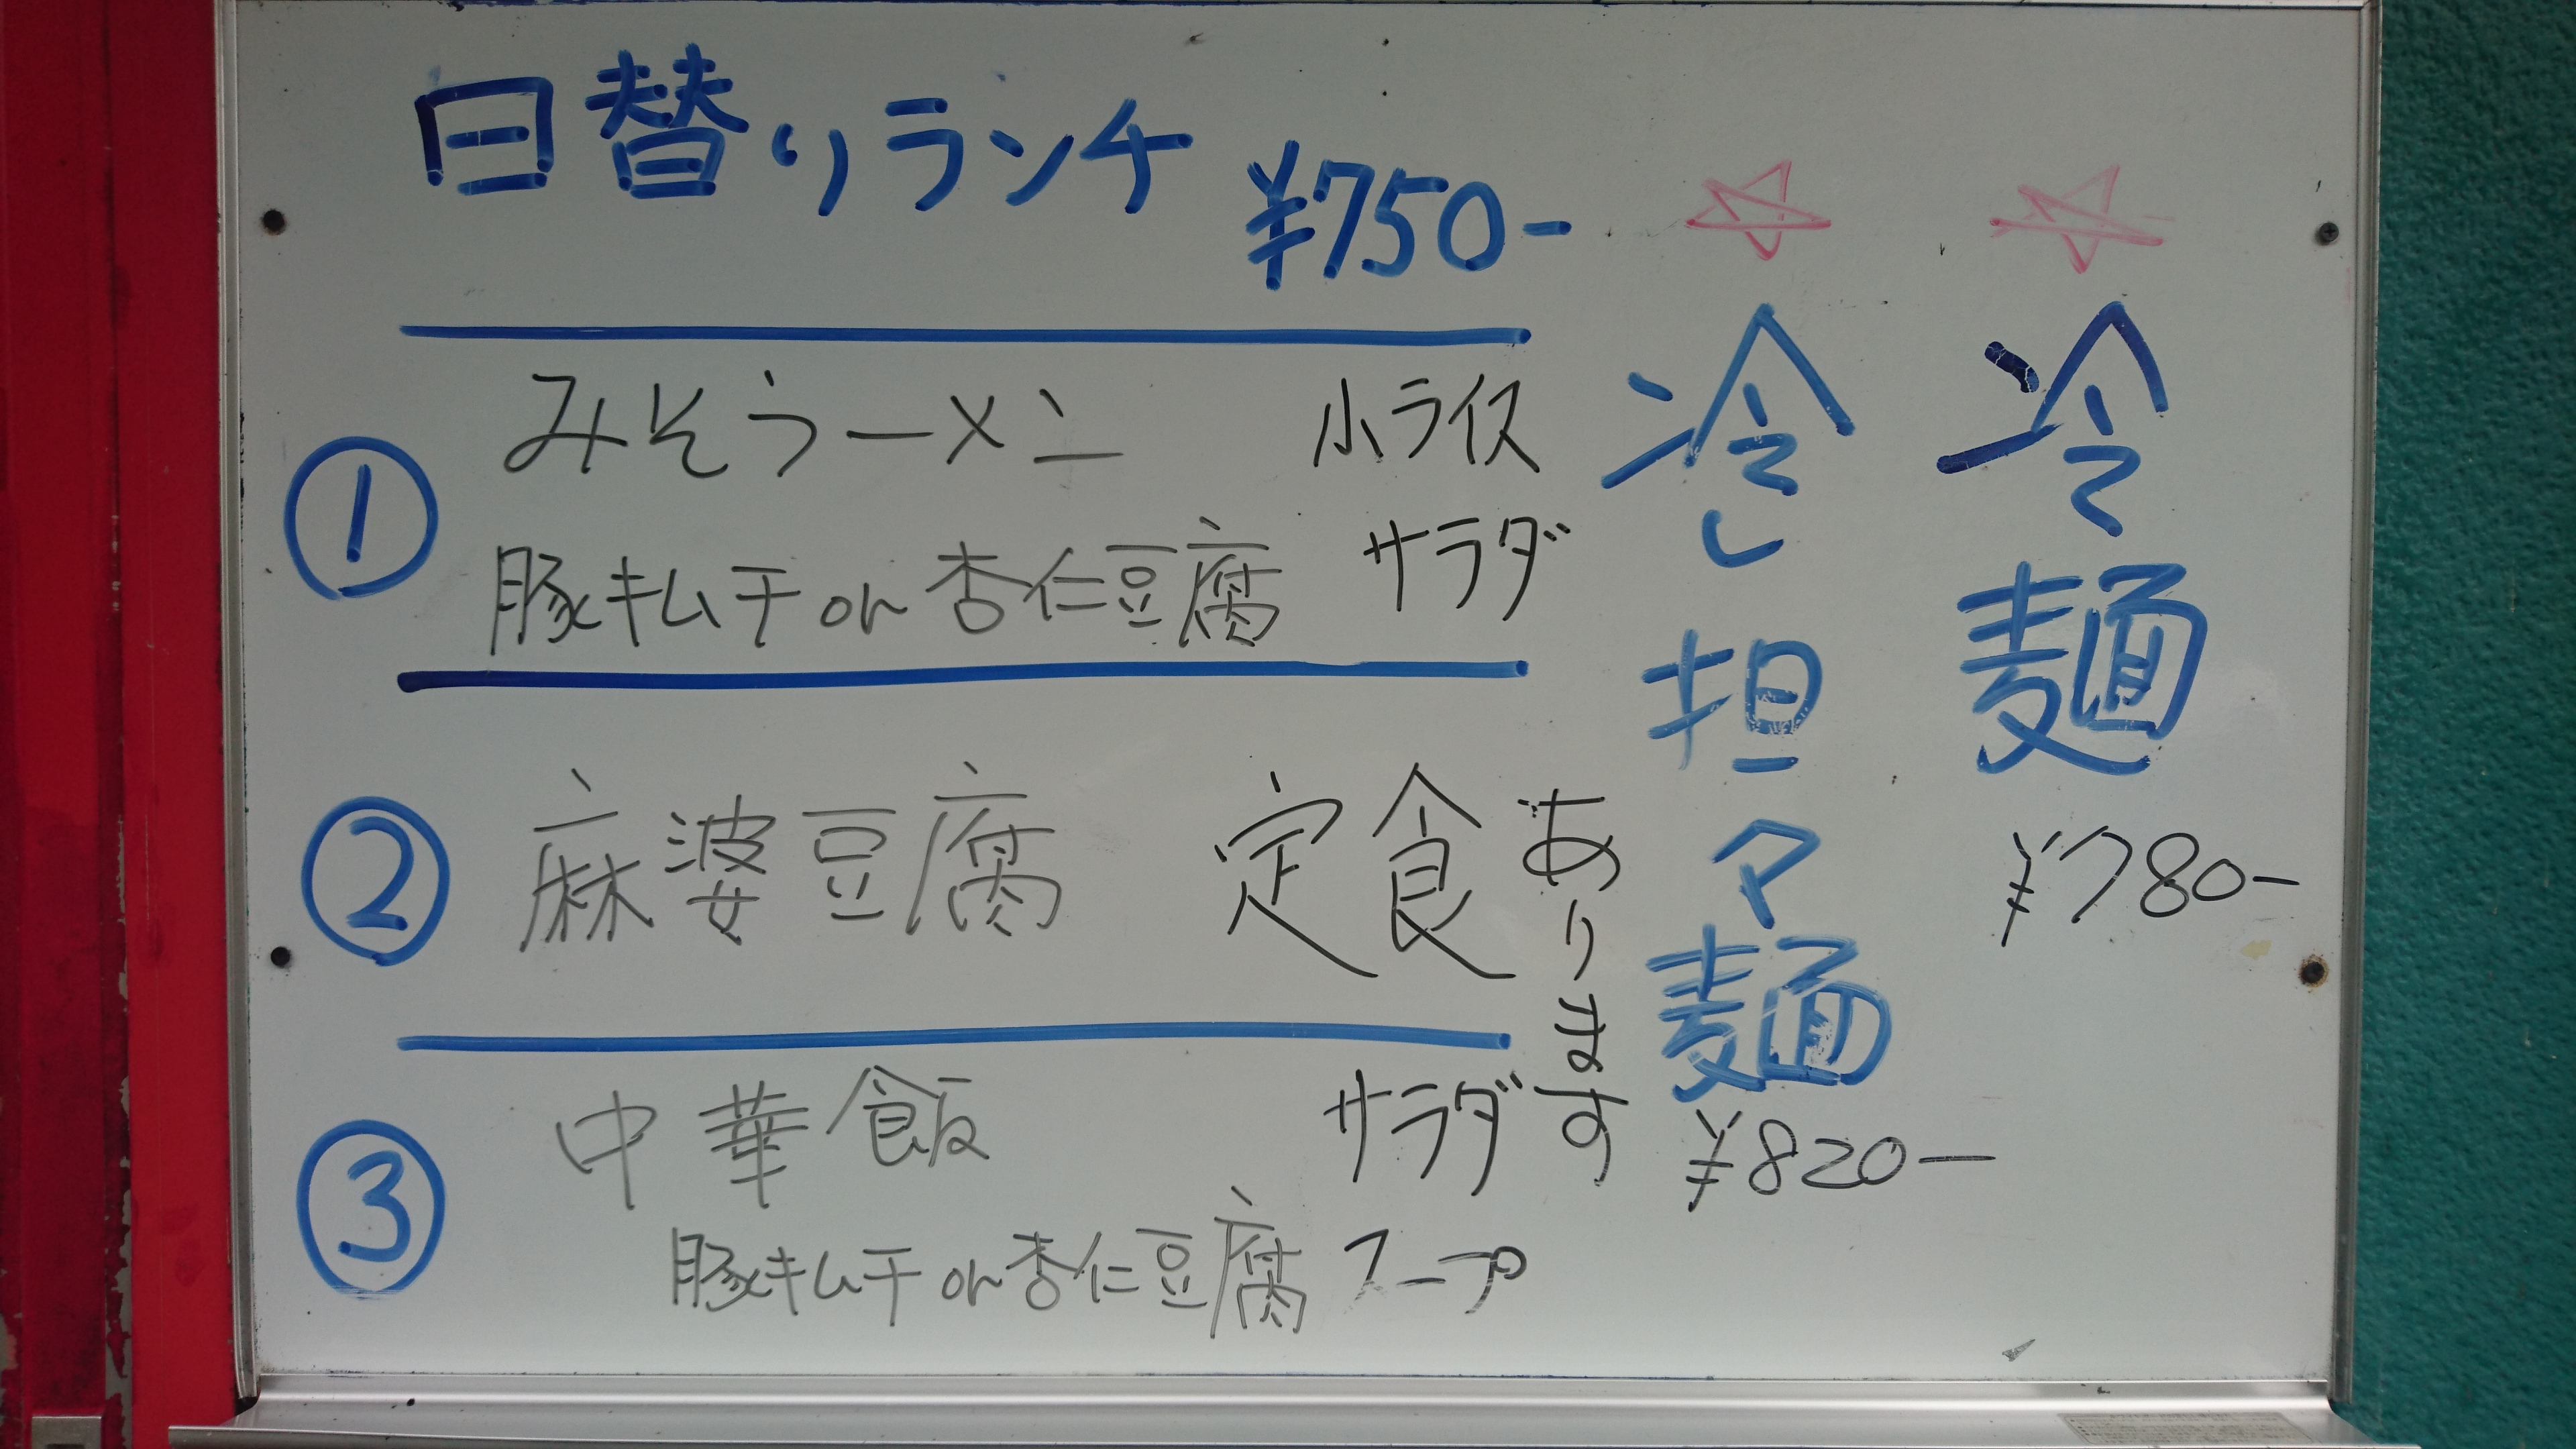 日替りランチ ¥750-
① みそラーメン 小ライス
豚キムチ or 杏仁豆腐 サラダ
② 麻婆豆腐 定食
③ 中華飯 サラダ
豚キムチ or 杏仁豆腐 スープ
☆ 冷麺 ¥780-
☆ 冷し担々麺 ¥820-
あります